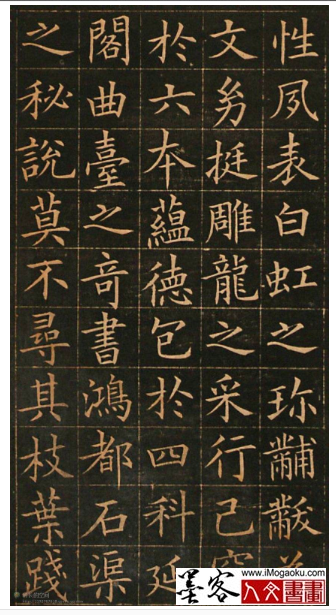 性夙表白虹之珎黼黻
文幼挺雕龍之采行己
於六夲蘊德包於四科延
閣曲臺之竒書鴻都石渠
之秘說莫不尋其枝葉踐
墨客
www.iMogaoku.com
人文書畫